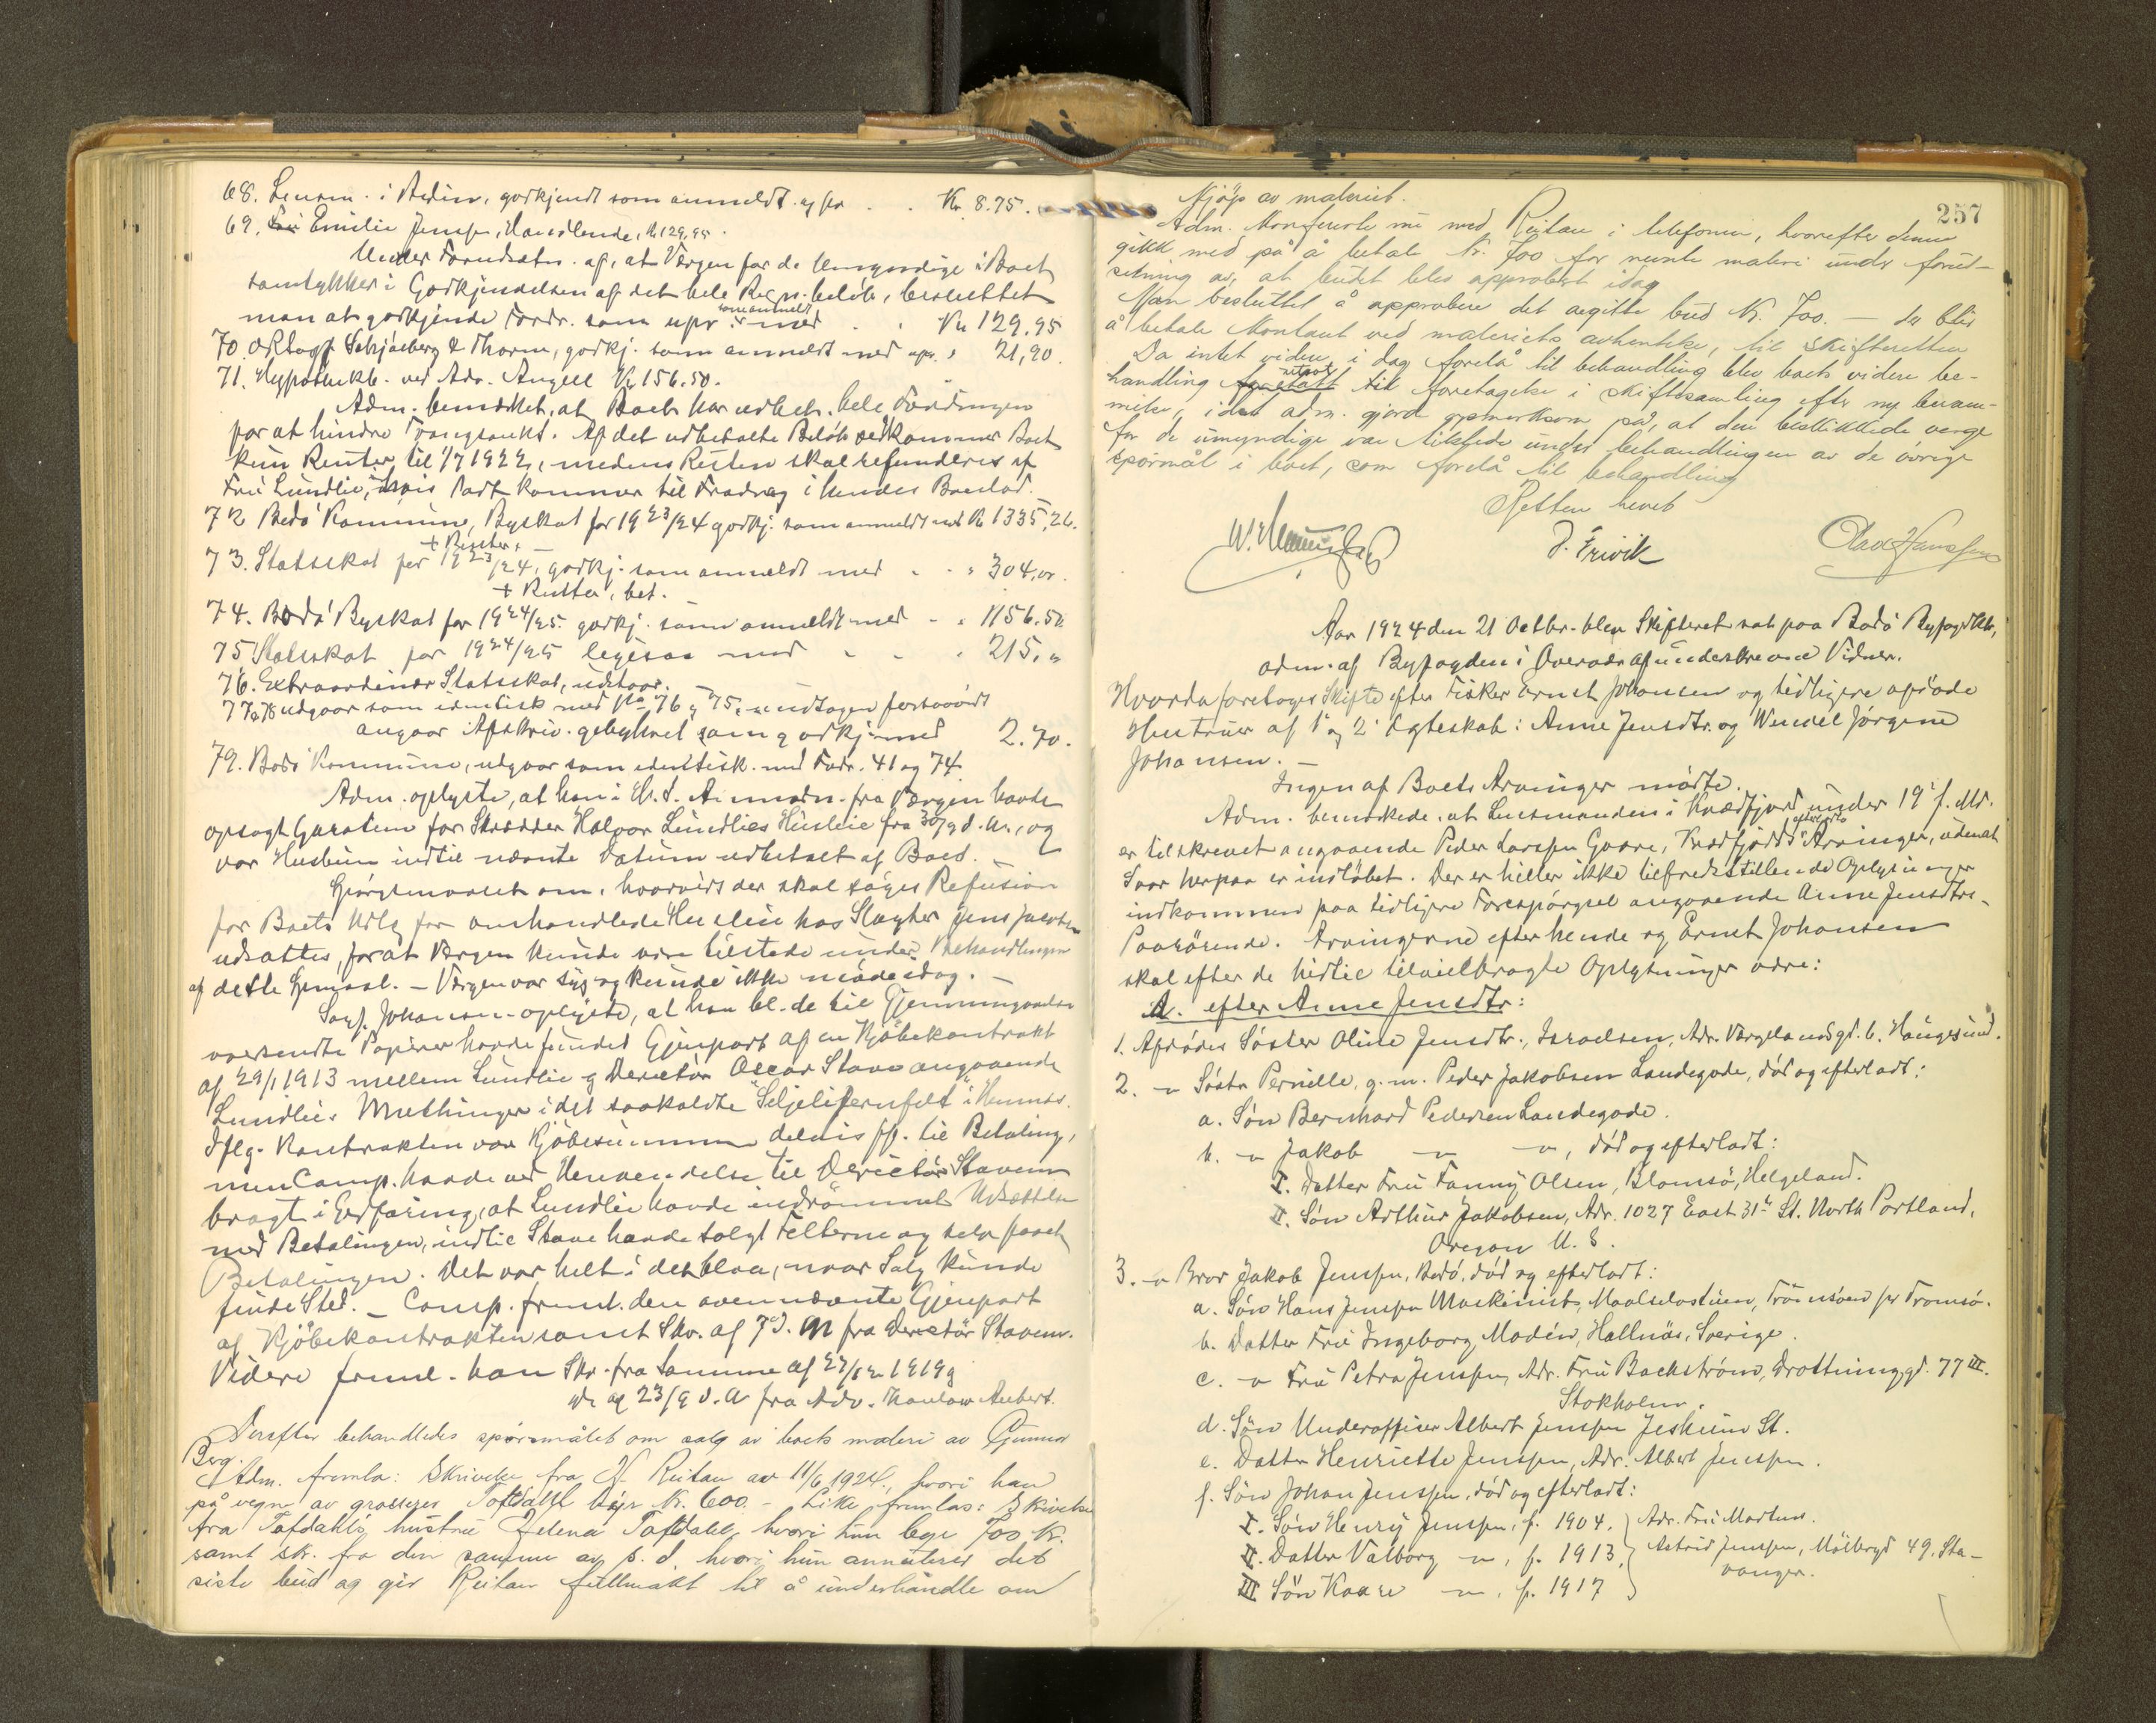 68. Lensm. i Bodin, godkjendt som anmeldt og for . . Kr. 8.75.
69. Emilie Jenssen, Kr 129,95.
Under Forudsætn. af, at Værgen for de Umyndige i Boet
samtykker i Godkjendelsen af det hele Regn. beløb, besluttet
man at godkjende Fordr. som upr. som anmeldt med . . Kr 129.95
70. Schjølberg & Thorm, godkj. som anmeldt med upr. " 21,90.
71. Hypothekb. ved Adv. Angell Kr 156.50.
Adm. bemærket, at Boet har udbet. hele Fordringen
for at hindre Tvangsaukt. Af det udbetalte Beløb vedkommer Boet
kun Renter til 1/7 1922, medens Resten skal refunderes af
Fru Lundlie, hvis Part kommer til Fradrag i hendes Boeslod.
72 Bodø Kommune, Byskat for 1923/24 godkj. som anmeldt med Kr 1335,26.
+ Renter.
73. Statsskat for 1923/24, godkj. som anmeldt med . . " 304,00.
+ Renter, bet.
74. Bodø Byskat for 1924/25 godkj. som anmeldt med . " 1156.50
75 Statsskat for 1924/25 ligesaa med . . . 215,"
76. Extraordinær Statsskat, udgaar.
77 & 78 udgaar som identisk med No 76 og 75, undtagen forsaavidt
angaar Afskriv. gebyhret som godkj. med 2.70.
79. Bodø Kommune, udgaar som identisk med Fodr. 41 og 74.
Adm. oplyste, at han i Anmodn. fra Værgen havde
opsagt Garatien for Skrædder Halvor Lundlies Husleie fra 30/9 d. A., og
var Husleien indtil nævnte Datum udbetalt af Boet. —
Spørgsmaalet om, hvorvidt der skal søges Refusion
for Boets Udlæg for omhandlede Husleie hos Slagter Jens Jacobsen
udsattes, forat Værgen kunde være tilstede under Behandlingen
af dette Spmaal. — Værgen var syg og kunde ikke møde idag. —
Sagf. Johansen oplyste, at han bl. de til Gjennemgaaelse
oversendte Papirer havde fundet Gjenpart af en Kjøbekontrakt
af 29/1 1913 mellem Lundlie og Direktør Oscar Stave angaaende
Lundlies Muthinger i det saakaldte "Seljelifernfelt" i Hemnæs.
Iflg. Kontrakten var Kjøbesummen delvis ff. til Betaling,
men Comp. havde ved Henvendelse til Direktør Stavem
bragt i Erfaring, at Lundlie havde indrømmet Udsættelse
med Betalingen, indtil Stave havde solgt Felterne og selv faaet
Betalingen. Det var helt i det blaa, naar Salg kunde
finde Sted. — Comp. freml. den ovennævnte Gjenpart
af Kjøbekontrakten samt Skr. af fra Direktør Stavem.
Videre freml. han Skr. fra Samme af 27/12 1919 &
do af 23/9 d. A fra Adv. Aubert.
Derefter behandledes spørsmålet om salg av boets materi av Gunnar
Berg.
Adm. fremla: Skrivelse fra H. Reitan av 11/6 1924, hvori han
på vegne av grosserer Toftdahl byr kr. 600. — Like fremlas: Skrivelse
fra Tofdahls hustru Helena Toftdahl, hvori hun byr 700 kr.
samt skr. fra den samme av s. d. hvori hun annulerer det
siste bud og gir Reitan fullmakt til å underhandle om
257
kjøp av materiet.
Adm. konfererte nu med Reitan i telefonen, hvorefter denne
gikk med på å betale kr. 700 for nevnte materi under forut-
setning av, at budet blev approbert idag
Man besluttet å approbere det avgitte bud kr. 700. — der blir
å betale kontant ved materiets avhentelse, til skifteretten
Da intet videre i dag forelå til behandling blev boets videre be-
handling utsat til foretagelse i skiftesamling efter ny beram-
melse, idet adm. gjorde opmerksom på, at den beskikkede verge
for de umyndige var tilstede under behandlingen av de øvrige
spørmål i boet, som forelå til behandling
Retten hevet
J. Frivik Olav Hanssen
Aar 1924 den 21 Octbr. blev Skifteret sat paa Bodø Byfogdktr,
adm. af Byfogden i Overvær af underskrevne Vidner.
Hvorda foretoges Skifte efter Fisker Ernst Johansen og tidligere afdøde
Hustruer af 1' og 2' Egteskab: Anne Jensdtr. og Wendel Jørgine
Johansen. —
Ingen af Boets Arvinger mødte.
Adm. bemærkede, at Lensmanden i Kvædfjord under 19' f. Md.
er tilskrevet angaaende Peder Larssen Gaare, Kvædfjords efterl. Arvinger, uden at
Svar herpaa er indløbet. Der er heller ikke tilfredsstillende Oplysninger
indkommen paa tidligere Forespørgsel angaaende Anne Jensdtrs.
Paarørende. Arvingerne efter hende og Ernst Johansen
skal efter de hidtil tilveiebragte Oplysninger være:
A. efter Anne Jensdtr:
1. Afdødes Søster Oline Jensdtr., Israelsen, Adr. Værgelandsgt. 6. Haugesund.
2. — " Søster Pernille, g. m. Peder Jakobsen Landegode, død og efterladt:
a. Søn Bernhard Pedersen Landegode.
b. — " Jakob — " — ", død og efterladt:
I. Datter Fru Fanny Olsen, Blomsø, Helgeland.
II. Søn Arthur Jakobsen, Adr. 1027 East 31th St. North Portland,
Oregon U. S.
3. — " Bror Jakob Jenssen, Bodø, død og efterladt:
a. Søn Hans Jenssen Maskinist, Tromsø.
b. Datter Fru Ingeborg Modén, Hallnäs, Sverige.
c. — " Fru Petra Jenssen, Adr. Fru Backstrøm, Drottninggt. 77 III.
Stokholm.
d. Søn Underofficer Albert Jenssen Jesheim St.
e. Datter Henriette Jenssen, Adr. Albert Jenssen.
f. Søn Johan Jenssen, død og efterladt:
I. Søn Henry Jenssen, f. 1904. } Adr. Fru
II. Datter Valborg — ", f. 1913 } Astrid Jenssen, 49, Sta-
III Søn Kaare — ", f. 1917 } vanger.